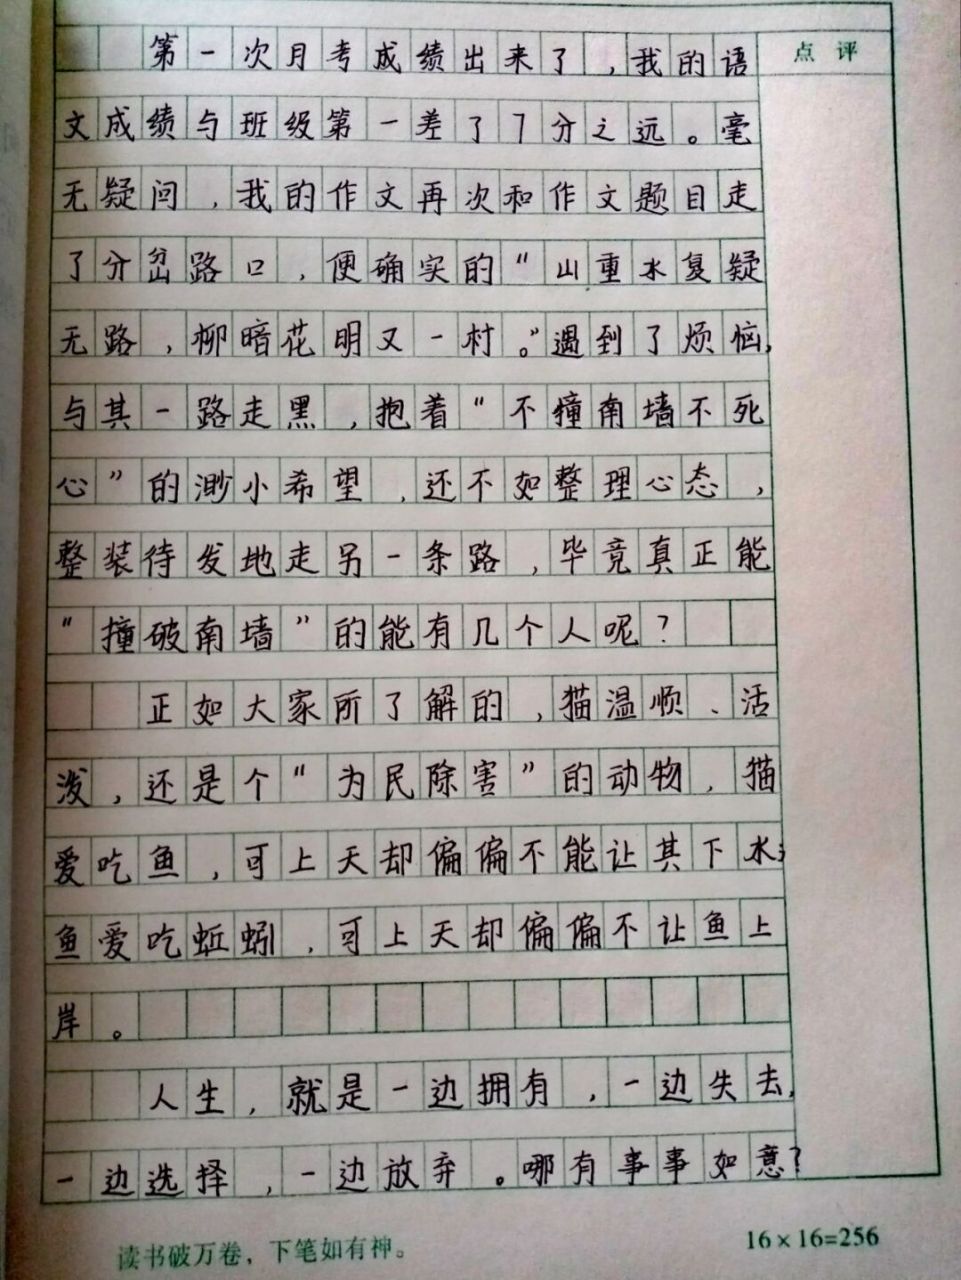 点评
第一次月考成绩出来了,我的语
文成绩与班级第一差了7分之远。毫
无疑问,我的作文再次和作文题目走
了分岔路口,便确实的“山重水复疑
无路,柳暗花明又一村。”遇到了烦恼,
与其一路走黑,抱着“不撞南墙不死
心”的渺小希望,还不如整理心态,
整装待发地走另一条路,毕竟真正能
“撞破南墙”的能有几个人呢?
正如大家所了解的,猫温顺、活
泼,还是个“为民除害”的动物,猫
爱吃鱼,可上天却偏偏不能让其下水;
鱼爱吃蚯蚓,可上天却偏偏不让鱼上
岸。
人生,就是一边拥有,一边失去,
一边选择,一边放弃。哪有事事如意?
读书破万卷,下笔如有神。
16×16=256